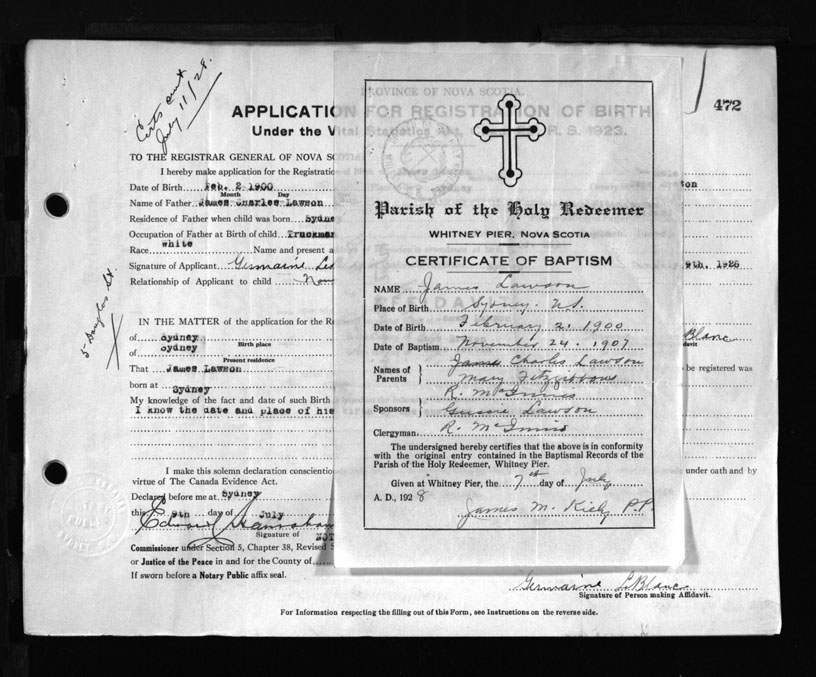 Certs sent
July 11/28.
472
PROVINCE OF NOVA SCOTIA
APPLICATION FOR REGISTRATION OF BIRTH
Under the Vital Statistics Act, R. S. 1923.
TO THE REGISTRAR GENERAL OF NOVA SCOTIA
I hereby make application for the Registration
Date of Birth Feb. 2 1900
Month Day
Name of Father James Charles Lawson
Residence of Father when child was born Sydney
Occupation of Father at Birth of child Truckman
Race white Name and present a
Signature of Applicant Germaine LeB
Relationship of Applicant to child
5 Douglas St.
9th. 1928
Blanc
davit
IN THE MATTER of the application for the Re
of Sydney
Birth place
of Sydney
Present residence
That James Lawson to be registered was
born at Sydney
My knowledge of the fact and date of such Birth
I know the date and place of his
I make this solemn declaration conscientio under oath and by
virtue of The Canada Evidence Act.
Declared before me at Sydney
this 9th day of July
Signature of NOT
Commissioner under Section 5, Chapter 38, Revised S
or Justice of the Peace in and for the County of
If sworn before a Notary Public affix seal.
Germaine LeBlanc
Signature of Person making Affidavit.
For Information respecting the filling out of this Form, see Instructions on the reverse side.
Parish of the Holy Redeemer
WHITNEY PIER, NOVA SCOTIA
CERTIFICATE OF BAPTISM
NAME James Lawson
Place of Birth Sydney N.S.
Date of Birth February 2. 1900
Date of Baptism November 24. 1907
Names of Parents } James Charles Lawson
Mary Fitzgibbons
Sponsors } R. McInnis
Gussie Lawson
Clergyman R. McInnis
The undersigned hereby certifies that the above is in conformity
with the original entry contained in the Baptismal Records of the
Parish of the Holy Redeemer, Whitney Pier.
Given at Whitney Pier, the 7th day of July
A. D., 1928
James M. Kiely P.P.